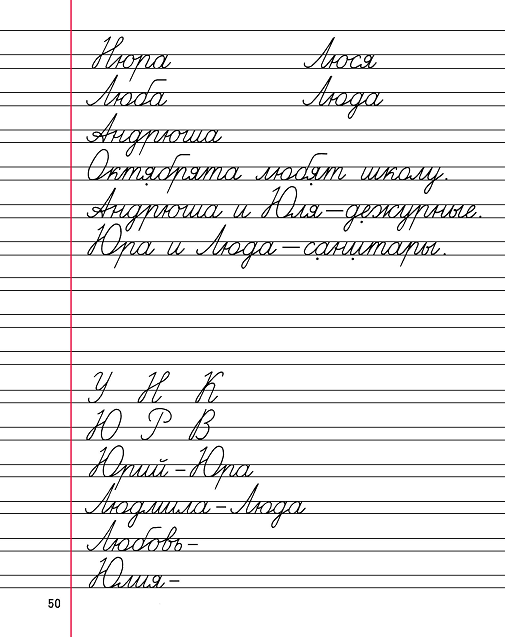 Нюра Люся
Люба Люда
Андрюша
Октябрята любят школу.
Андрюша и Юля – дежурные.
Юра и Люда – санитары.
У Н К
Ю Р В
Юрий – Юра
Людмила – Люда
Любовь –
Юлия –
50